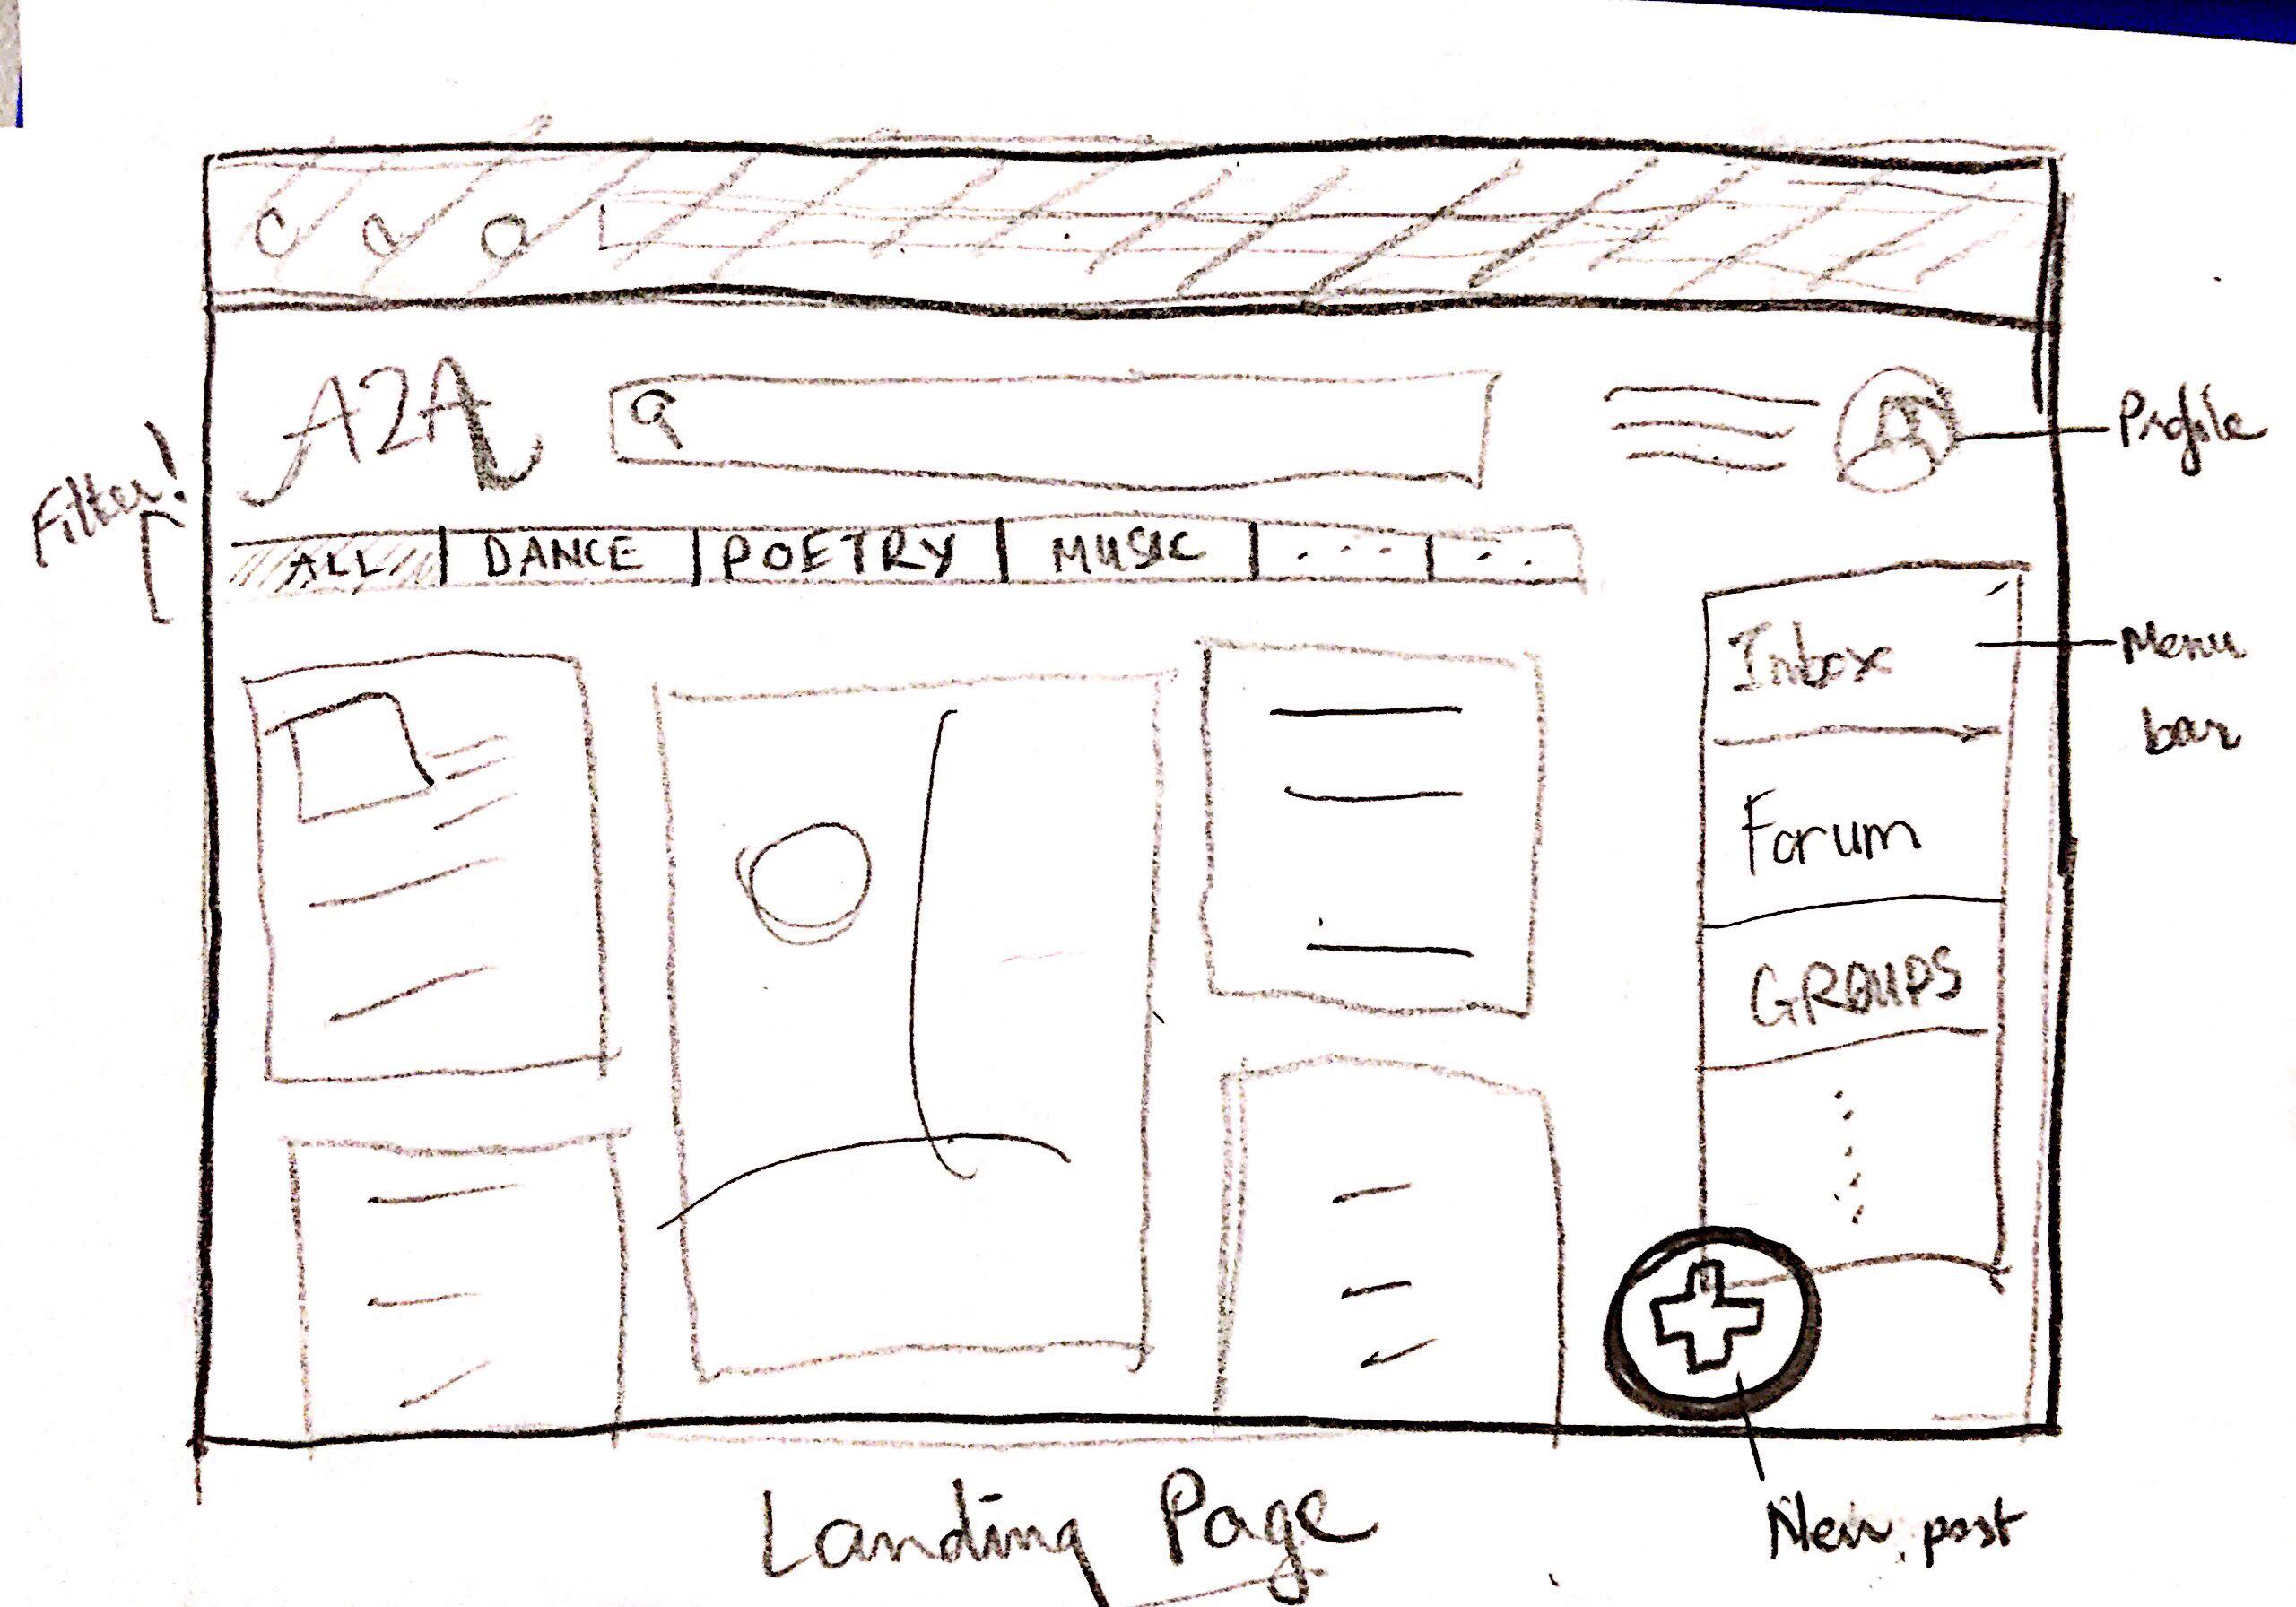 A2A
Profile
Filter!
ALL DANCE POETRY MUSIC ... ...
Inbox
Menu
bar
Forum
GROUPS
Landing Page
New post